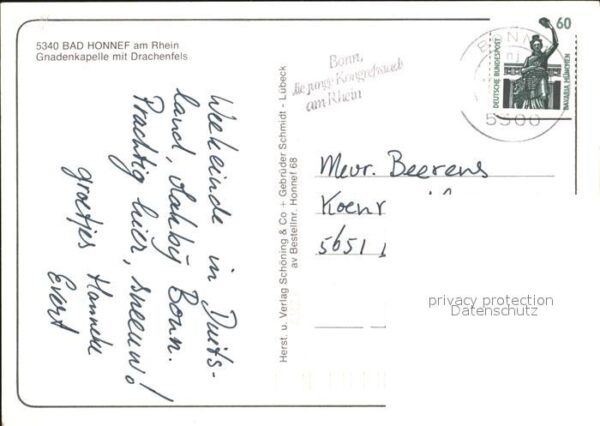 5340 BAD HONNEF am Rhein
Gnadenkapelle mit Drachenfels
Weekeinde in Duits-
land, vlakbij Bonn.
Prachtig hier, sneeuw!
groetjes Hanneke
Evert
Herst. u. Verlag Schöning & Co + Gebrüder Schmidt - Lübeck
av Bestellnr. Honnef 68
Bonn,
die junge Kongreßstadt
am Rhein
BONN
5300
60
DEUTSCHE BUNDESPOST
BAVARIA MÜNCHEN
Mevr. Beerens
Koenr
5651
privacy protection
Datenschutz